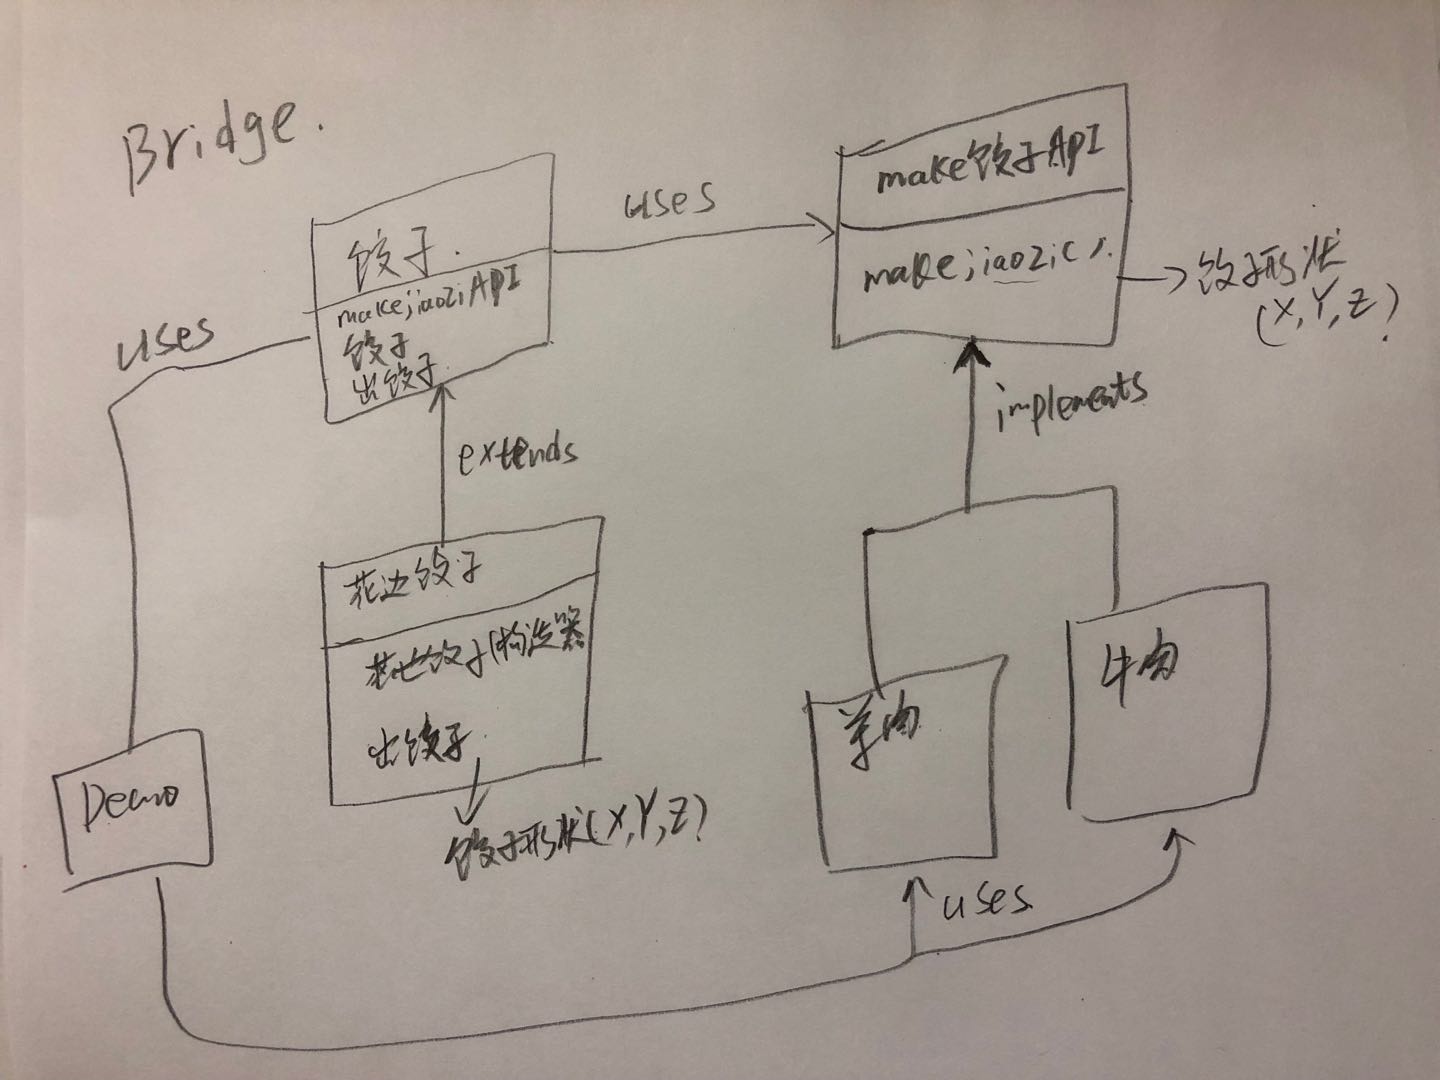 Bridge.
饺子.
makejiaoziAPI
饺子
出饺子.
uses
uses
make饺子API
makejiaozi().
饺子形状
(X,Y,Z)
extends
implements
花边饺子
花边饺子(构造器
出饺子
饺子形状(X,Y,Z)
羊肉
牛肉
Demo
uses